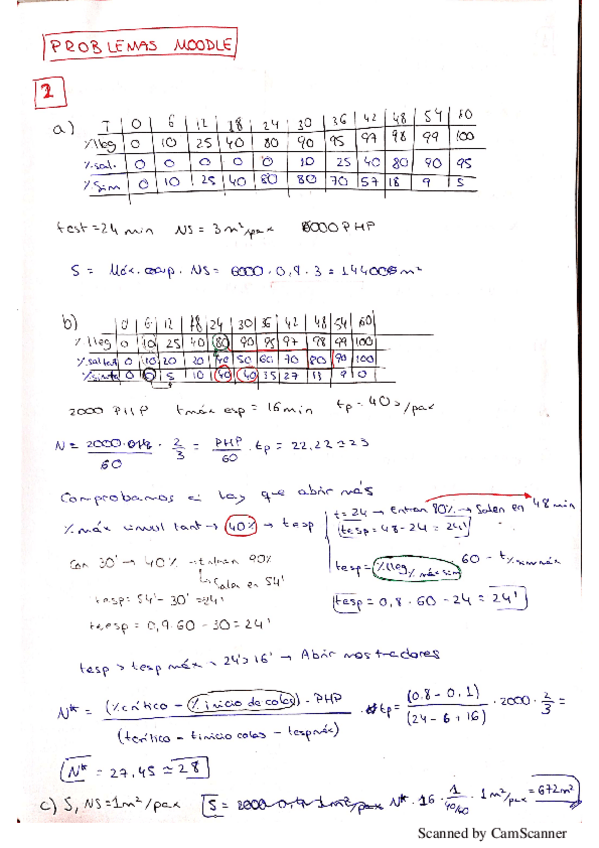 PROBLEMAS MOODLE
2
a) T 0 6 12 18 24 30 36 42 48 54 60
%lleg 0 10 25 40 80 90 95 97 98 99 100
%sal. 0 0 0 0 0 10 25 40 80 90 95
%Sim 0 10 25 40 80 80 70 57 18 9 5
test = 24 min NS = 3 m²/pax 6000 PHP
S = Máx. ocup. NS = 6000 · 0,8 · 3 = 14400 m²
b) 0 6 12 18 24 30 36 42 48 54 60
% lleg 0 10 25 40 80 90 95 97 98 99 100
%salidas 0 10 20 20 40 50 60 70 80 90 100
%simult 0 0 5 10 40 40 35 27 18 9 0
2000 PHP tmáx esp = 16 min tp = 40 s/pax
N = 2000 · 2/3 / 60 = PHP/60 · tp = 22,22 ≈ 23
Comprobamos si hay que abrir más
% máx simultant → 40% → tesp
t = 24 → entran 80% → Salen en 48 min
tesp = 48 - 24 = 24'
Con 30' → 40% → entran 90%
Salen en 54'
tesp = %lleg % máx sim · 60 - t % sim máx
tesp = 54' - 30' = 24'
tesp = 0,8 · 60 - 24 = 24'
tesp = 0,9 · 60 - 30 = 24'
tesp > tesp máx → 24' > 16' → Abrir mostradores
N* = (% crítico - % inicio de colas) · PHP / (tcrítico - tinicio colas - tespmáx) · tp = (0.8 - 0,1) / (24 - 6 + 16) · 2000 · 2/3 =
N* = 27,45 ≈ 28
c) S, NS = 1 m²/pax S = N* · 16 · 1/40/60 · 1 m²/pax = 672 m²
Scanned by CamScanner